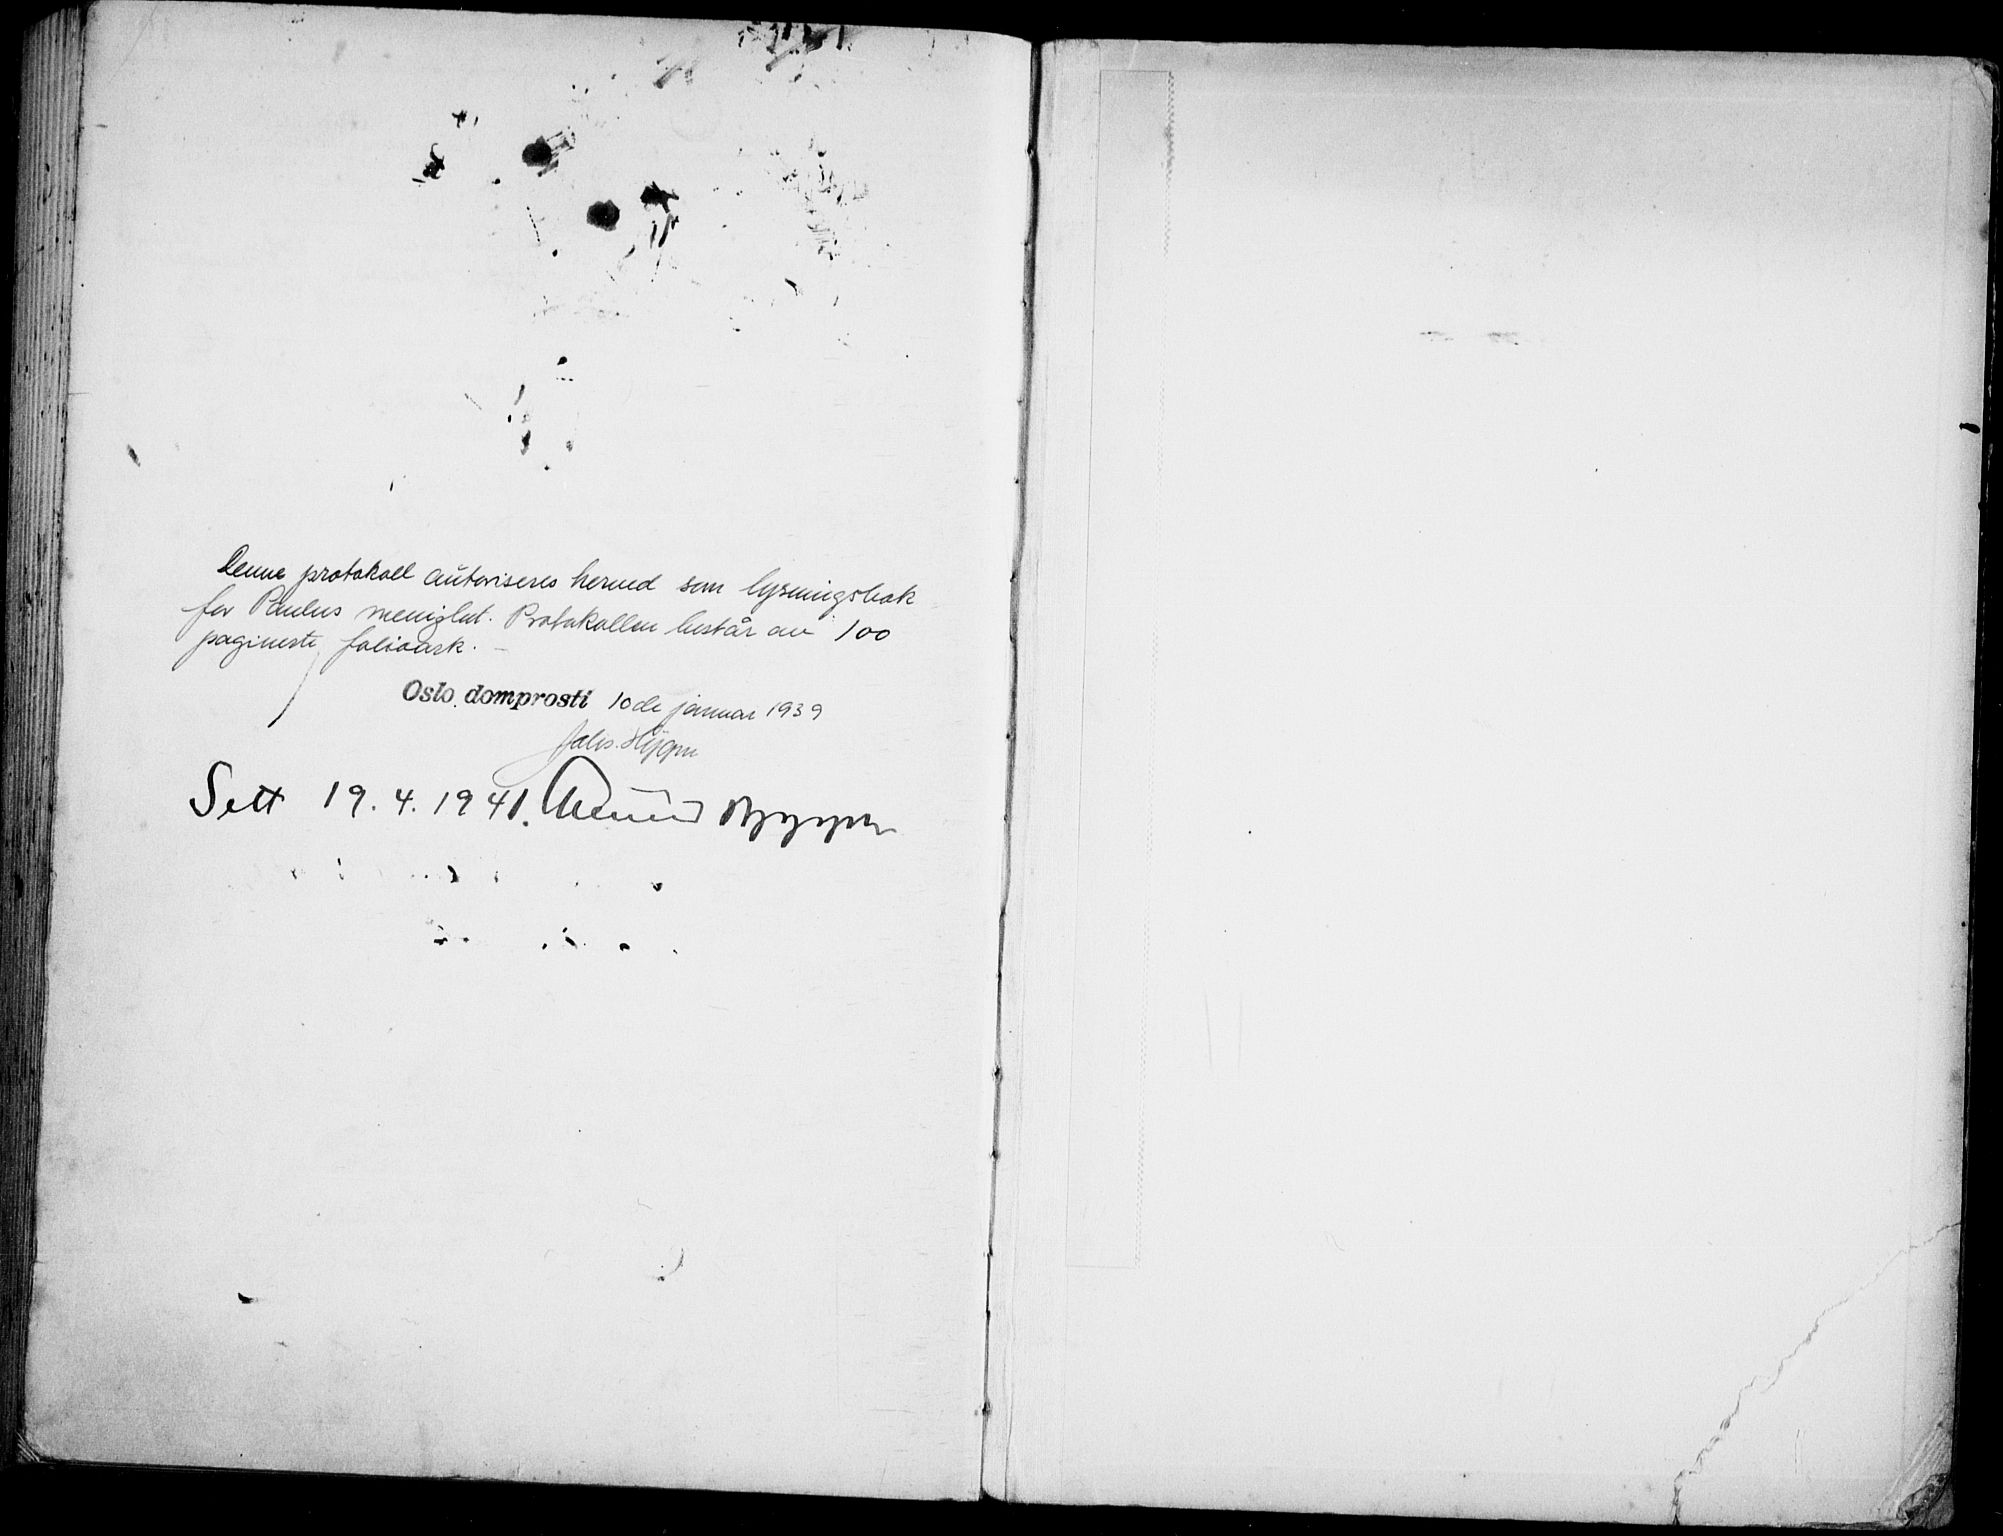 Denne protokoll autoriseres hermed som lysningsbok
for Paulus menighet. Protokollen består av 100
paginerte folioark. –
Oslo domprosti 10de januar 1939
Johs. Hygen
Sett 19.4.1941.